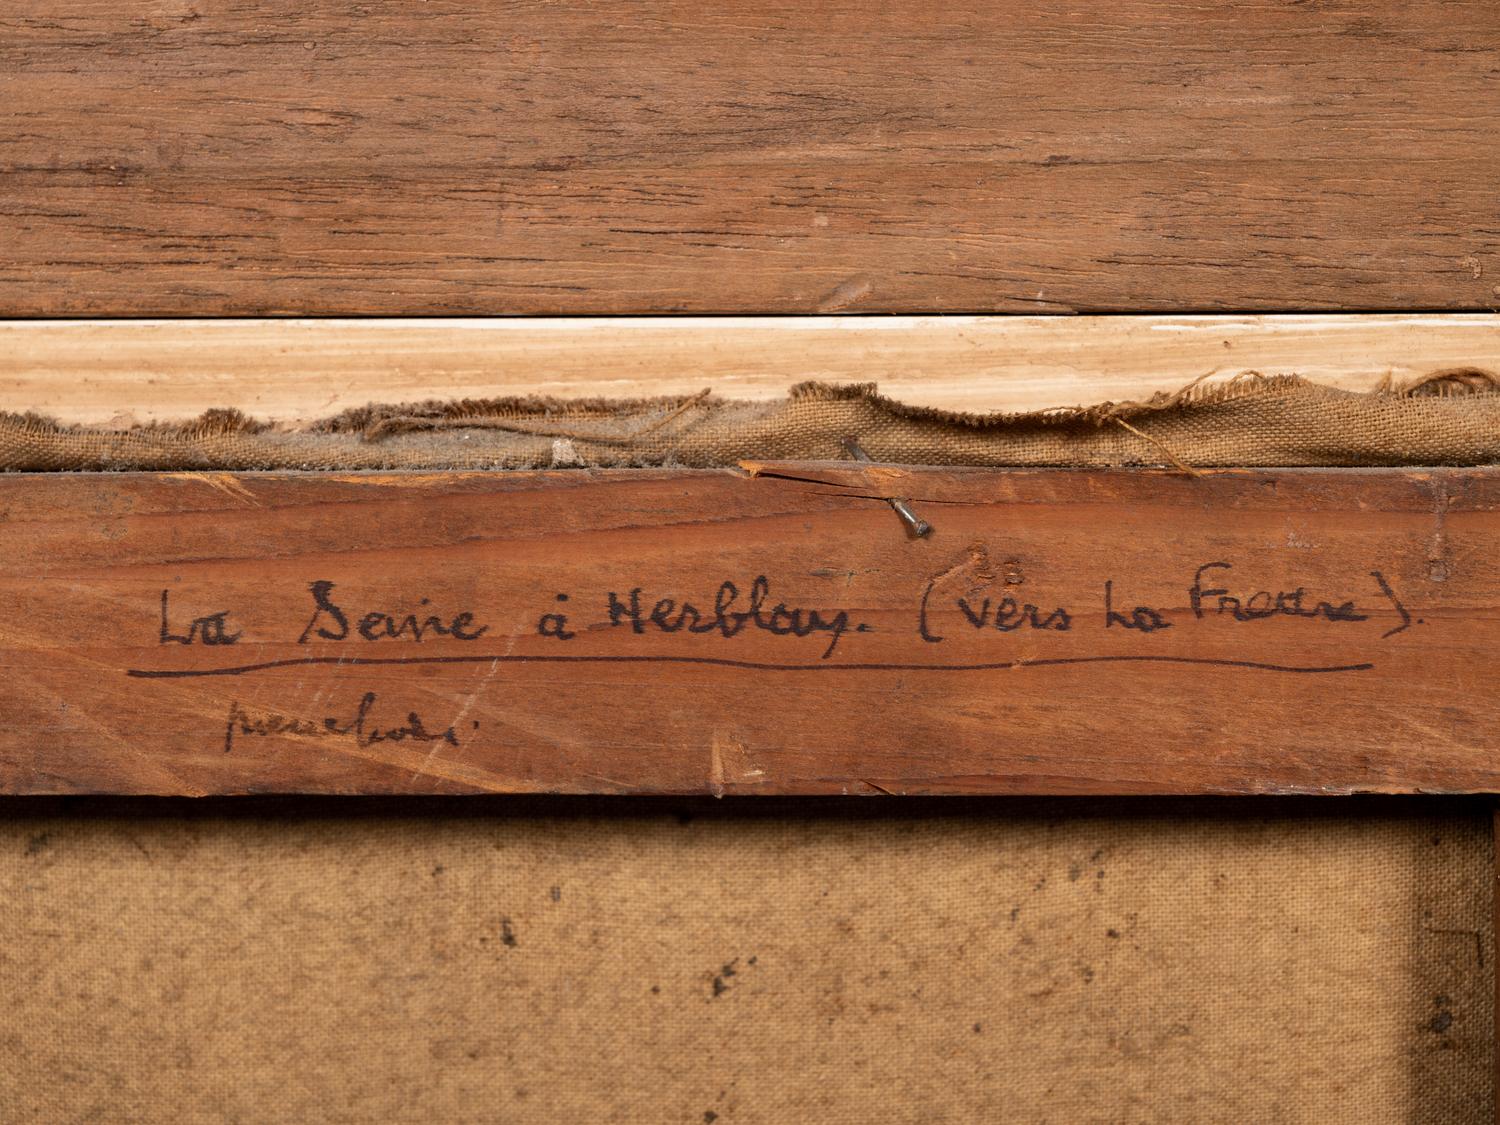 La Seine à Herblay. (vers La Frette).